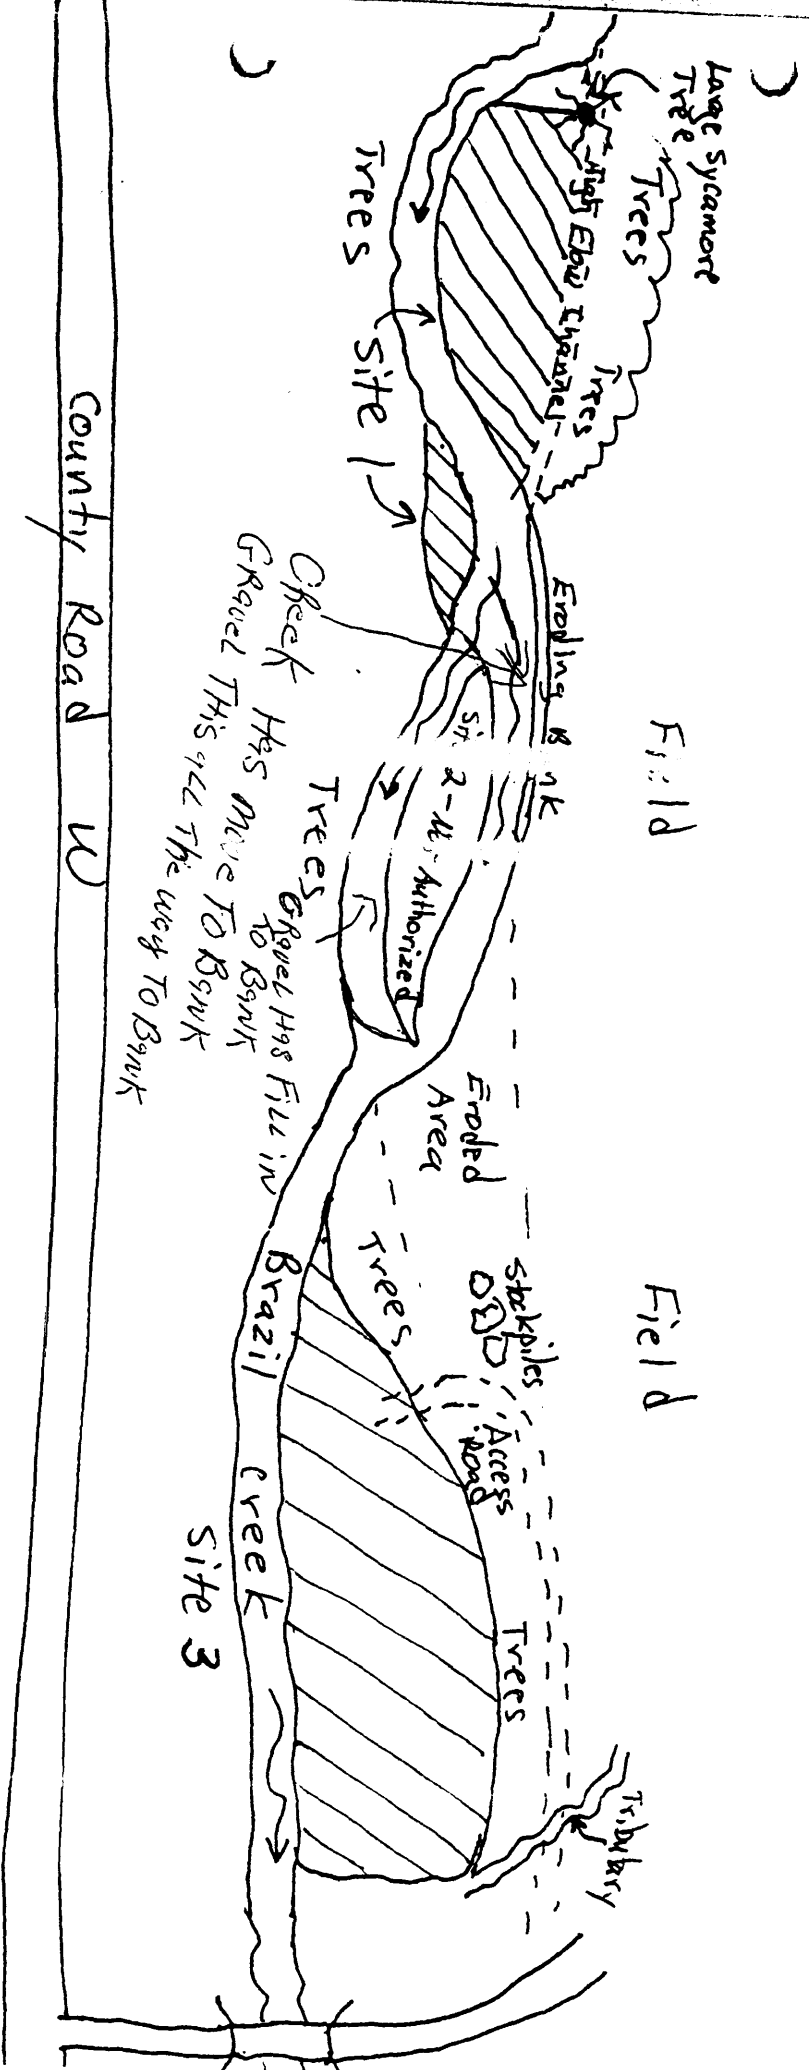 Large Sycamore
Tree
Trees
High Flow Channel
Trees
Trees
Site 1
Eroding B nk
Field
Sit 2 - Authorized
Creek Has move To Bank
Gravel This all The way To Bank
Trees
Gravel Has Fill in
To Bank
Eroded
Area
Field
Stockpiles
Trees
Access
Road
Brazil Creek
Site 3
Trees
Tributary
County Road W